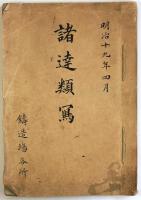 明治十九年四月
諸達類寫
鋳造場各所